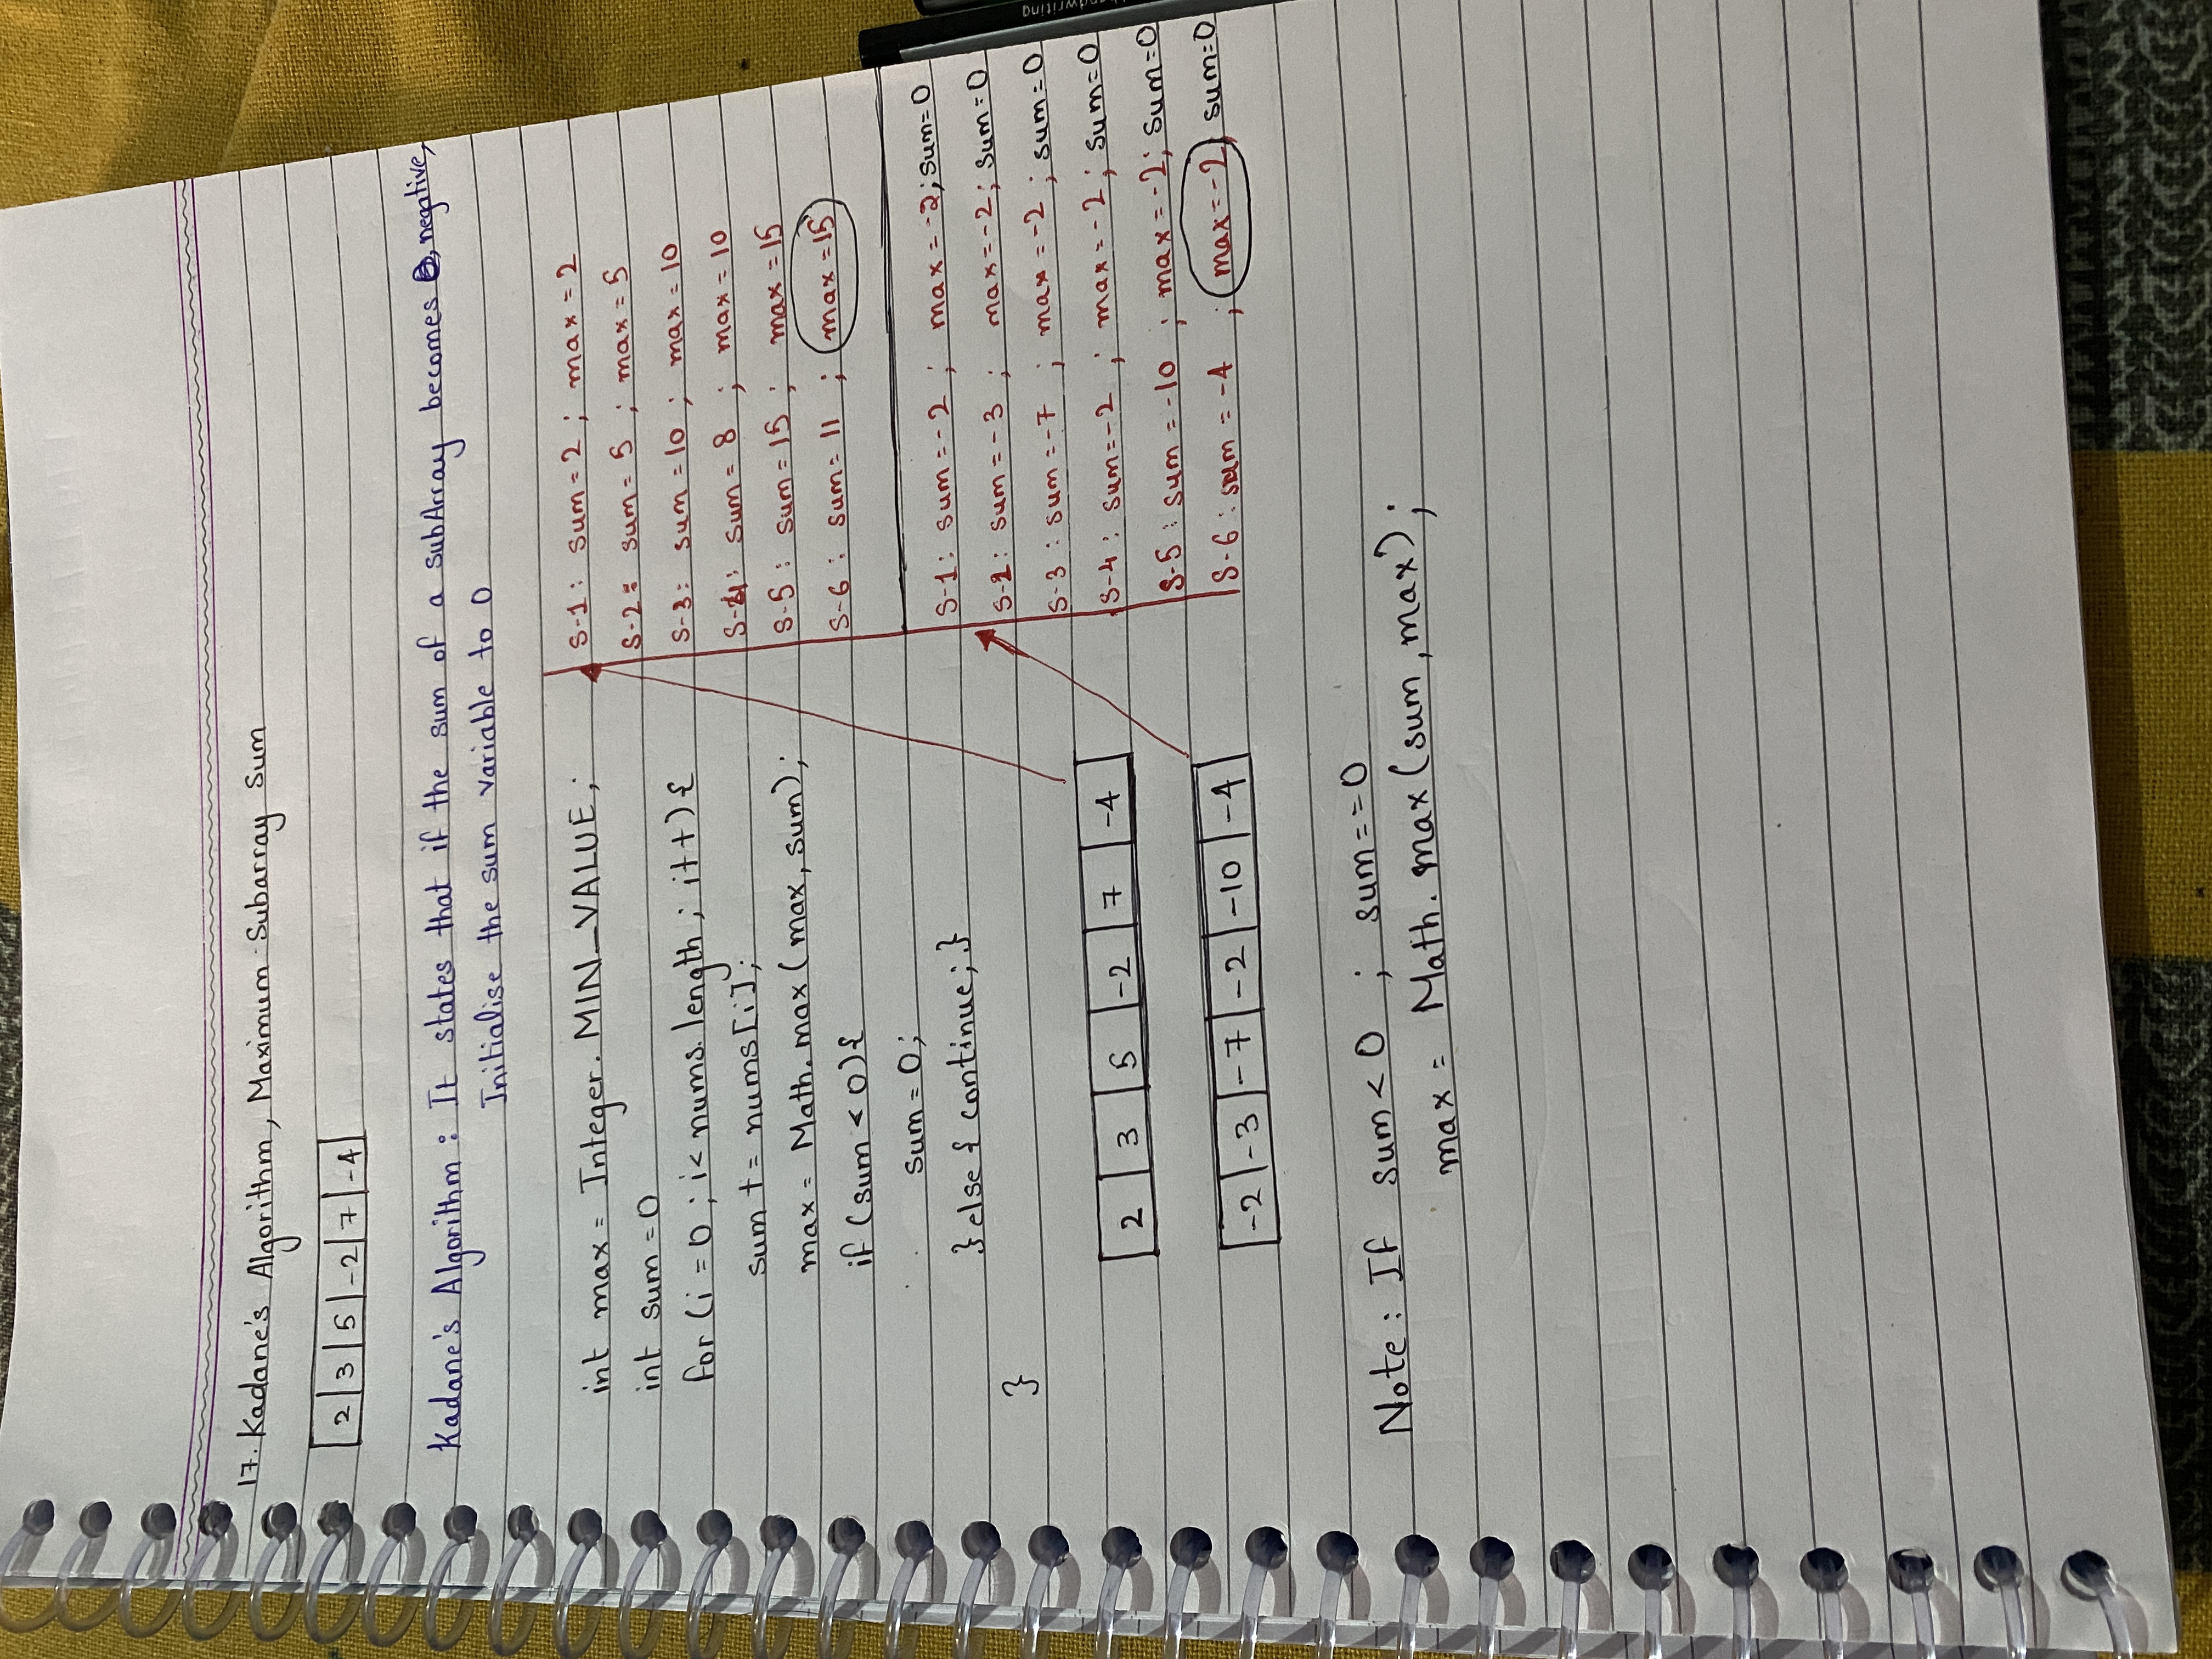 17. Kadane's Algorithm, Maximum Subarray Sum
2 3 5 -2 7 -4
Kadane's Algorithm : It states that if the sum of a subArray becomes negative,
Initialise the sum variable to 0
int max = Integer. MIN_VALUE ;
int sum = 0
for (i = 0 ; i < nums. length ; i++) {
sum += nums[i];
max = Math. max ( max, sum) ;
if (sum < 0) {
sum = 0;
} else { continue; }
}
2 3 5 -2 7 -4
-2 -3 -7 -2 -10 -4
S-1 : sum = 2 ; max = 2
S-2 : sum = 5 ; max = 5
S-3 : sum = 10 ; max = 10
S-4 : sum = 8 ; max = 10
S-5 : sum = 15 ; max = 15
S-6 : sum = 11 ; max = 15
S-1 : sum = -2 ; max = -2; sum=0
S-2 : sum = -3 ; max = -2; sum=0
S-3 : sum = -7 ; max = -2 ; sum=0
S-4 : sum = -2 ; max = -2 ; sum=0
S-5 : sum = -10 ; max = -2; sum=0
S-6 : sum = -4 ; max = -2 sum=0
Note : If sum < 0 ; sum == 0
max = Math. max (sum, max) ;